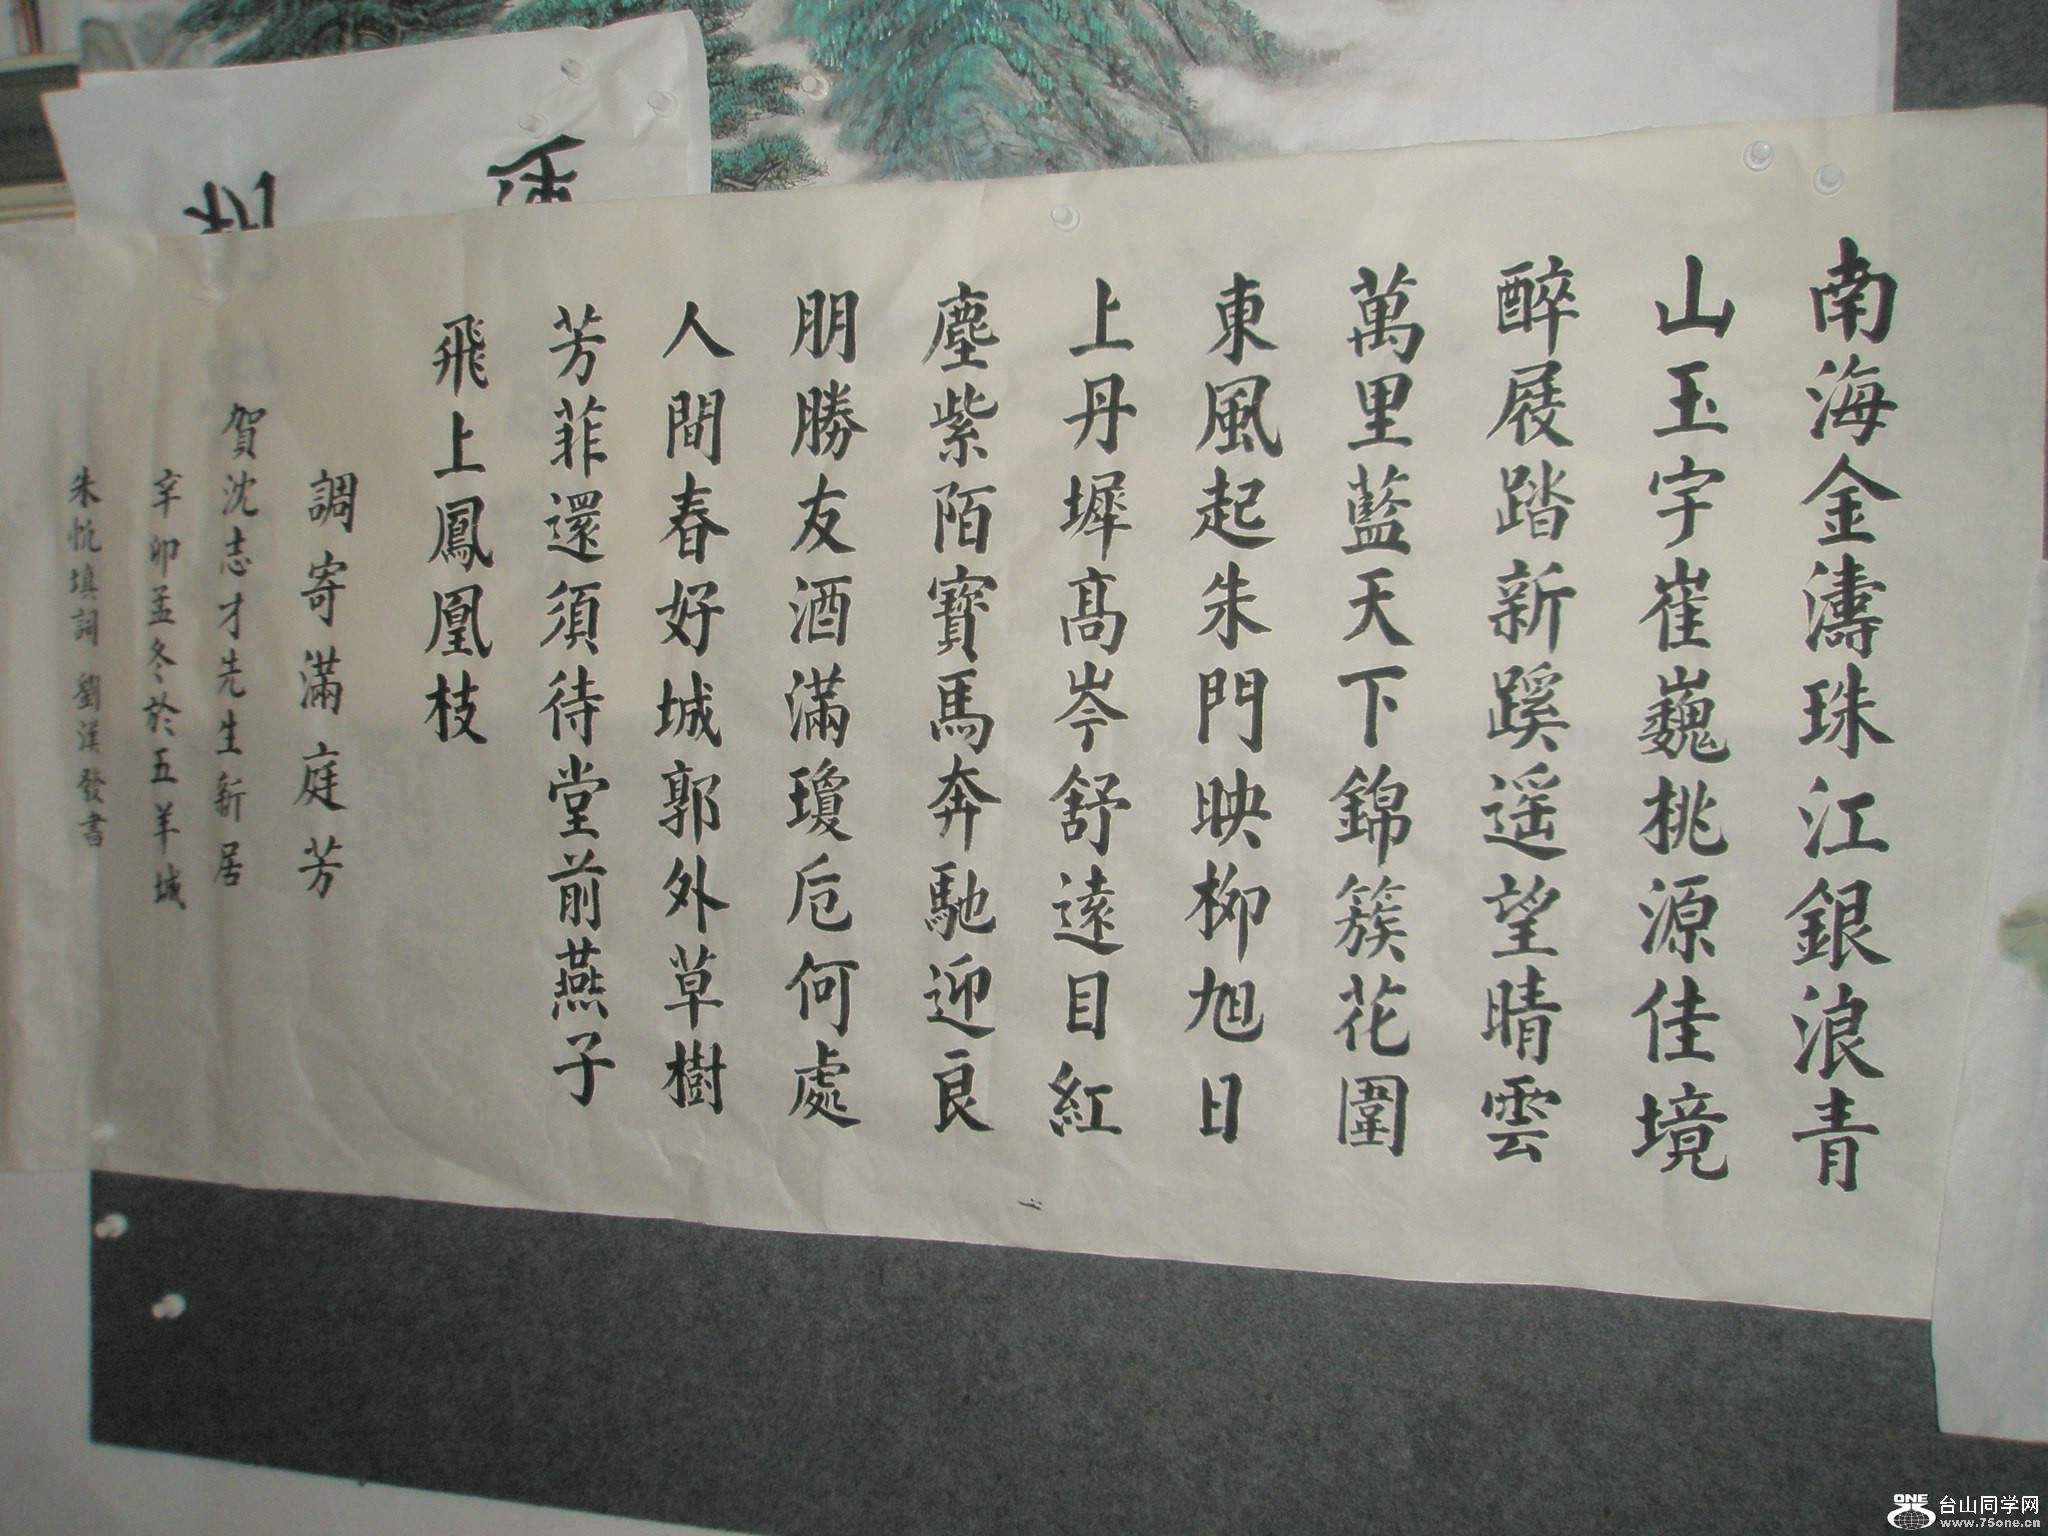 南海金濤珠江銀浪青
山玉宇崔巍桃源佳境
醉屐踏新蹊遥望晴雲
萬里藍天下錦簇花圍
東風起朱門映柳旭日
上丹墀高岑舒遠目紅
塵紫陌寶馬奔馳迎良
朋勝友酒滿瓊卮何處
人間春好城郭外草樹
芳菲還須待堂前燕子
飛上鳳凰枝
調寄滿庭芳
賀沈志才先生新居
辛卯孟冬於五羊城
朱帆填詞 劉漢發書
ONE
台山同学网
www.75one.cn